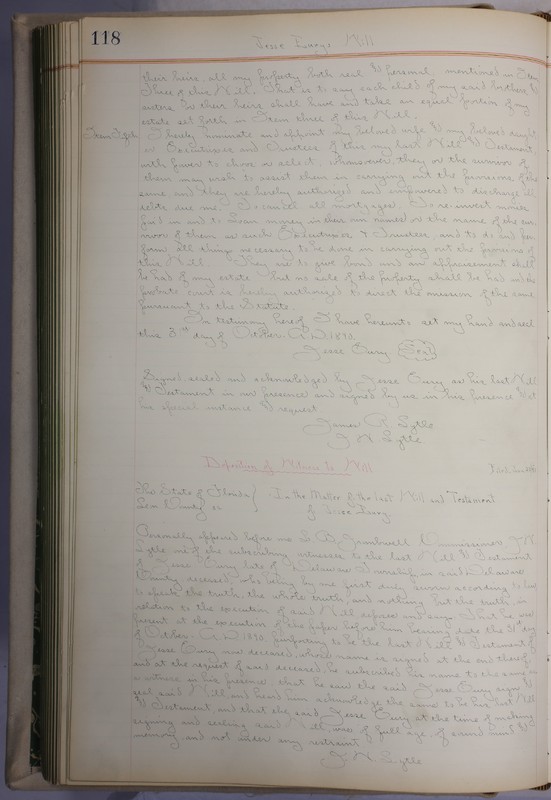 118
Jesse Curys Will
their heirs, all my property both real & personal, mentioned in Item
Three of this Will. That is to say each child of my said brothers &
sisters or their heirs shall have and take an equal portion of my
estate set forth in Item three of this Will.
I hereby nominate and appoint my beloved wife & my beloved
as Executrices and Trustees of this my last Will & Testament,
with power to chose or select, whomsoever they or the survivor of
them may wish to assist them in carrying out the provisions of the
same and they are hereby authorized and empowered to discharge all
debts due me. To cancel all mortgages. To re-invest moneys
paid in and to loan money in their own names or the name of the sur-
vivor of them as such Executrices, & Trustees, and to do and per-
form all things necessary to be done in carrying out the provisions of
this Will. They are to give bond and appraisement shall
be had of my estate but no sale of the property shall be had and the
probate court is hereby authorized to direct the omission of the same
pursuant to the Statute.
In testimony hereof I have hereunto set my hand and seal
this 3rd day of October, A. D. 1890.
Jesse Cury Seal
Signed, sealed and acknowledged by Jesse Cury as his last Will
& Testament in our presence and signed by us in his presence & at
his special instance & request.
James R. Lytle
J. W. Lytle
Deposition of Witness to Will
The State of Florida
In the Matter of the Last Will and Testament
County ss
of Jesse Cury.
Personally appeared before me Commissioner J. W.
Lytle one of the subscribing witnesses to the last Will & Testament
of Jesse Cury late of Delaware Township in said Delaware
County, deceased, who being by me first duly sworn according to law
to speak the truth, the whole truth, and nothing but the truth, in
relation to the execution of said Will deposes and says: That he was
present at the execution of the paper before him bearing date the 3rd day
of October, A. D. 1890, purporting to be the last Will & Testament of
Jesse Cury now deceased, whose name is signed at the end thereof,
and at the request of said deceased, he subscribed his name to the same as
a witness in his presence, that he saw the said Jesse Cury sign &
seal said Will, and heard him acknowledge the same to be his last Will
& Testament, and that the said Jesse Cury at the time of making
signing and sealing said Will, was of full age, of sound mind &
memory, and not under any restraint
J. W. Lytle